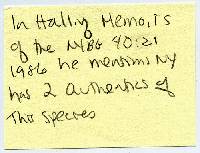 In Halling Memoirs
of the NYBG 40:21
1986 he mentions NY
has 2 authentics of
This Species